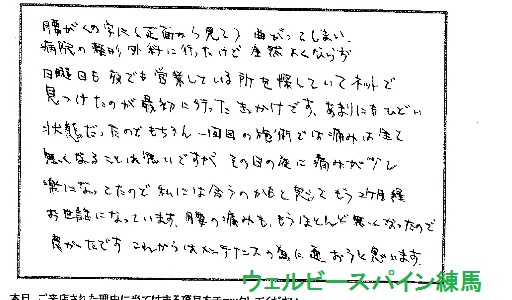 腰がくの字に(正面から見て)曲がってしまい、
病院の整形外科に行ったけど全然よくならず
日曜日も夜でも営業している所を探していてネットで
見つけたのが最初に行ったきっかけです。あまりにもひどい
状態だったのでもちろん一回目の施術では痛みは全て
無くなることは無いですが、その日の夜に痛みが少し
楽になってたので私には合うのかなと思ってもう2ヶ月程
お世話になっています。腰の痛みも、もうほとんど無くなったので
良かったです これからはメンテナンスの為に通おうと思います。
ウェルビースパイン練馬
本日、ご来店された理由に当てはまる項目をチェックしてください